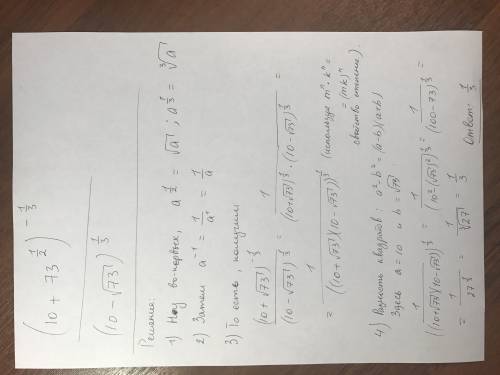 (10 + 73^(1/2))^(-1/3) / (10 - √73)^(1/3)
Решение:
1) Ну во-первых, a^(1/2) = √a ; a^(1/3) = ∛a
2) Затем a^(-1) = 1/a^1 = 1/a
3) То есть, получим:
(10 + √73)^(-1/3) / (10 - √73)^(1/3) = 1 / ((10 + √73)^(1/3) · (10 - √73)^(1/3)) =
= 1 / ((10 + √73)(10 - √73))^(1/3) (используя m^n · k^n = (mk)^n свойство степени).
4) Разность квадратов: a² - b² = (a - b)(a + b)
Здесь a = 10 и b = √73
1 / ((10 + √73)(10 - √73))^(1/3) = 1 / (10² - (√73)²)^(1/3) = 1 / (100 - 73)^(1/3) =
= 1 / 27^(1/3) = 1 / ∛27 = 1/3
Ответ: 1/3